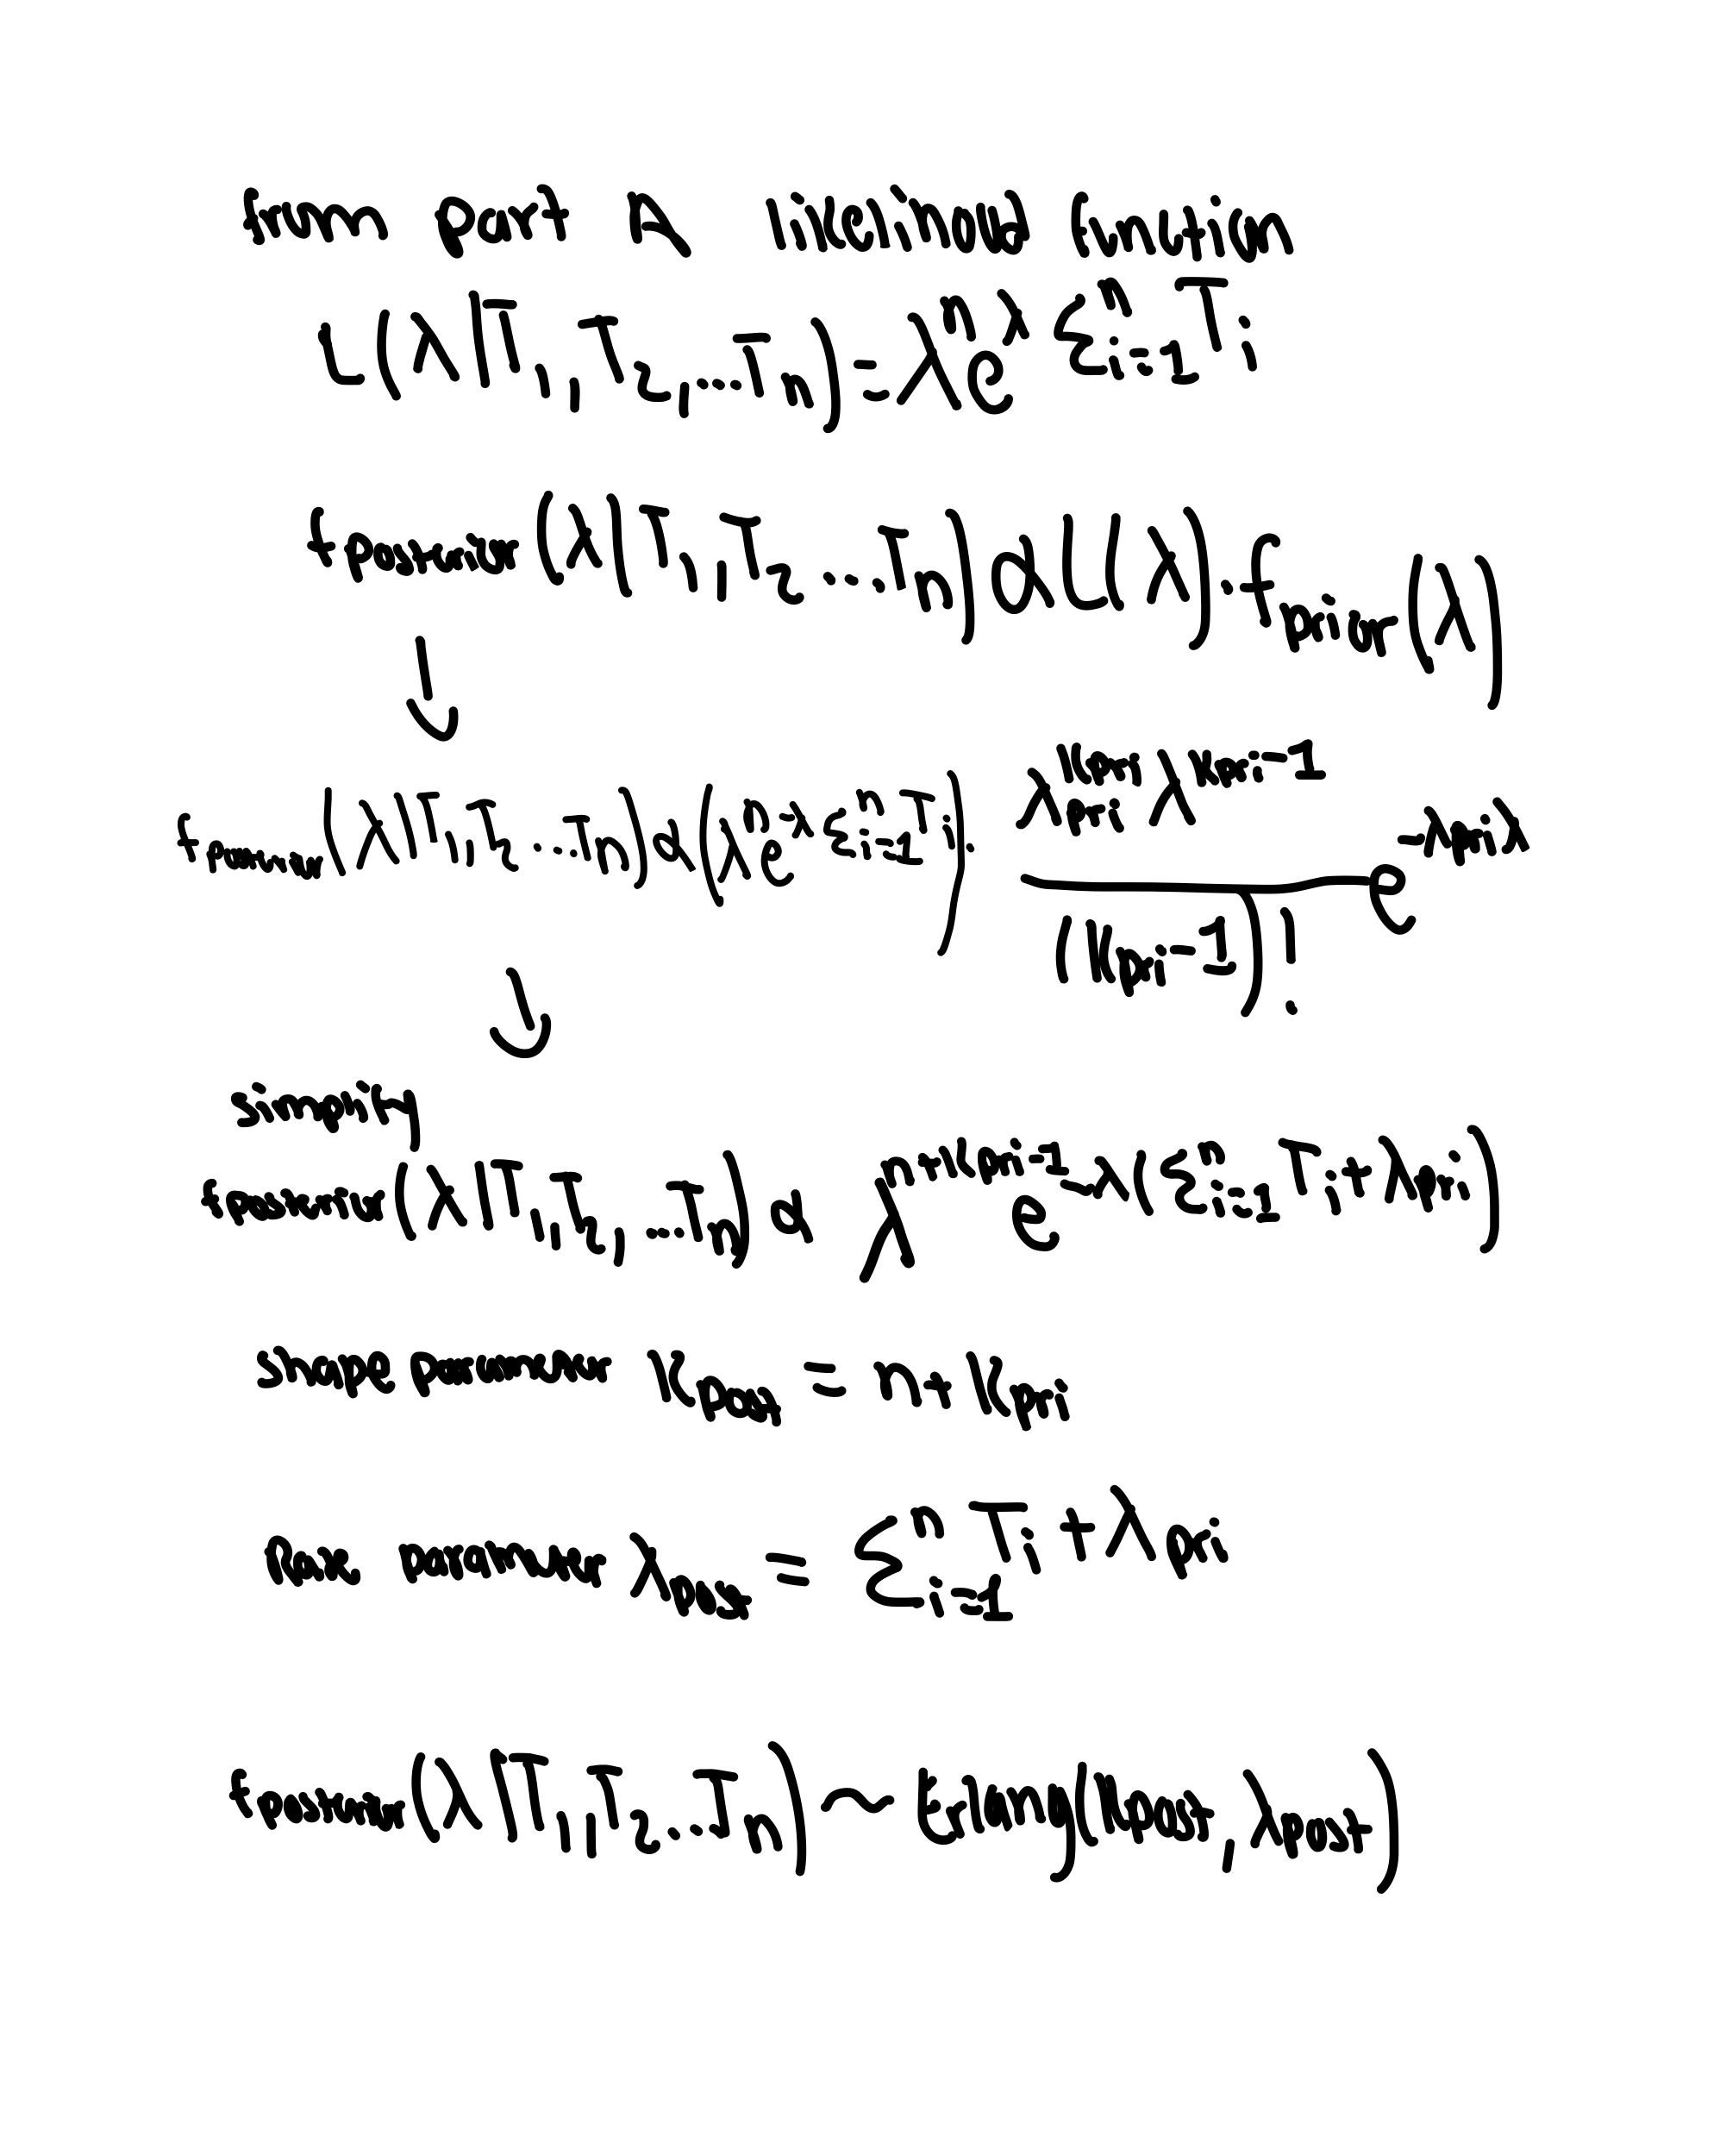 from part A likelihood function
L(λ|T₁,T₂,...Tₙ)=λⁿe^λ Σⁿᵢ₌₁Tᵢ
fposterior(λ|T₁,T₂...Tₙ)αL(λ)·fprior(λ)
↓
fposterior(λ|T₁,T₂...Tₙ)α(λⁿe^-λ Σⁿᵢ₌₁Tᵢ)· λpri^kpri λ^kpri-1 / (kpri-1)! e^-λpriλ
↓
simplify
fposterior(λ|T₁,T₂,...Tₙ)α λ^n+kpri-1 e^-λ(Σⁿᵢ₌₁Tᵢ+λpri)
shape parameter kpost = n+kpri
rate parameter λpost = Σⁿᵢ₌₁Tᵢ+λpri
fposterior(λ|T₁,T₂...Tₙ)~Erlang(kpost,λpost)